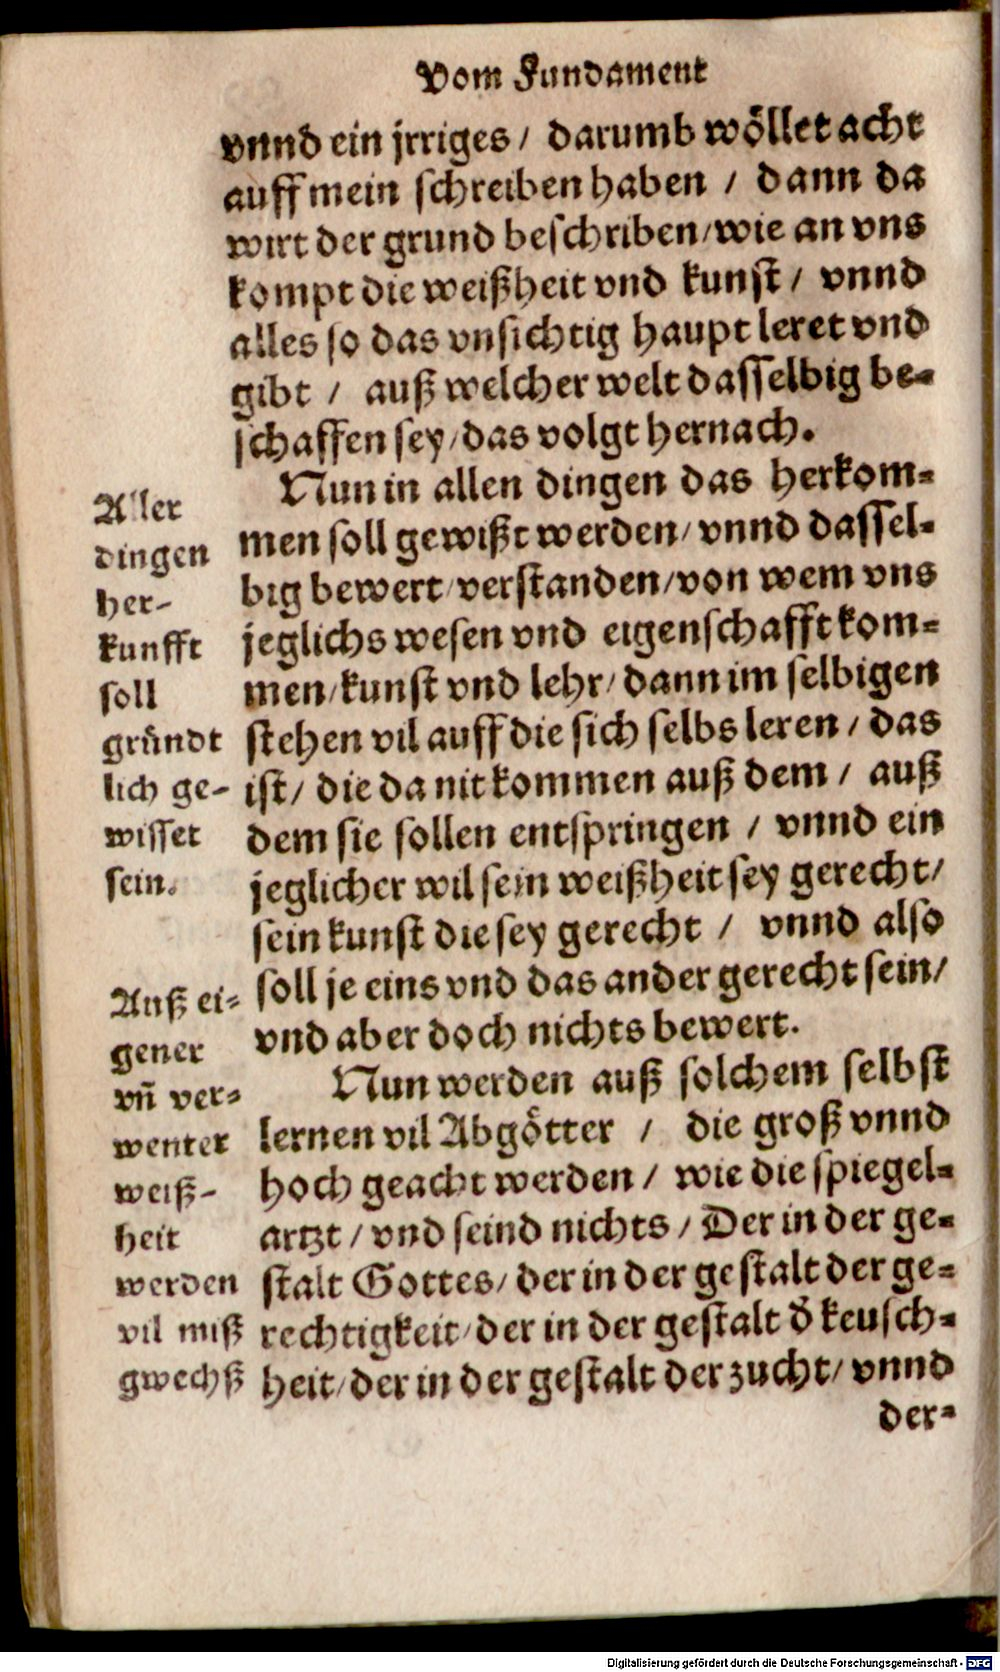 Vom Fundament
vnnd ein jrriges / darumb wöllet acht
auff mein schreiben haben / dann da
wirt der grund beschriben/wie an vns
kompt die weißheit vnd kunst / vnnd
alles so das vnsichtig haupt leret vnd
gibt / auß welcher welt dasselbig be-
schaffen sey/das volgt hernach.
Nun in allen dingen das herkom-
men soll gewißt werden/ vnnd dassel-
big bewert/verstanden/von wem vns
jeglichs wesen vnd eigenschafft kom-
men/kunst vnd lehr/dann im selbigen
stehen vil auff die sich selbs leren / das
ist/ die da nit kommen auß dem / auß
dem sie sollen entspringen / vnnd ein
jeglicher wil sein weißheit sey gerecht/
sein kunst die sey gerecht / vnnd also
soll je eins vnd das ander gerecht sein/
vnd aber doch nichts bewert.
Nun werden auß solchem selbst
lernen vil Abgötter / die groß vnnd
hoch geacht werden / wie die spiegel-
artzt / vnd seind nichts / Der in der ge-
stalt Gottes/ der in der gestalt der ge-
rechtigkeit/der in der gestalt d̄ keusch-
heit/der in der gestalt der zucht/ vnnd
der-
Aller
dingen
her-
kunfft
soll
gründt
lich ge-
wisset
sein.
Auß ei-
gener
vn̄ ver-
wenter
weiß-
heit
werden
vil miß
gwechß
Digitalisierung gefördert durch die Deutsche Forschungsgemeinschaft - DFG